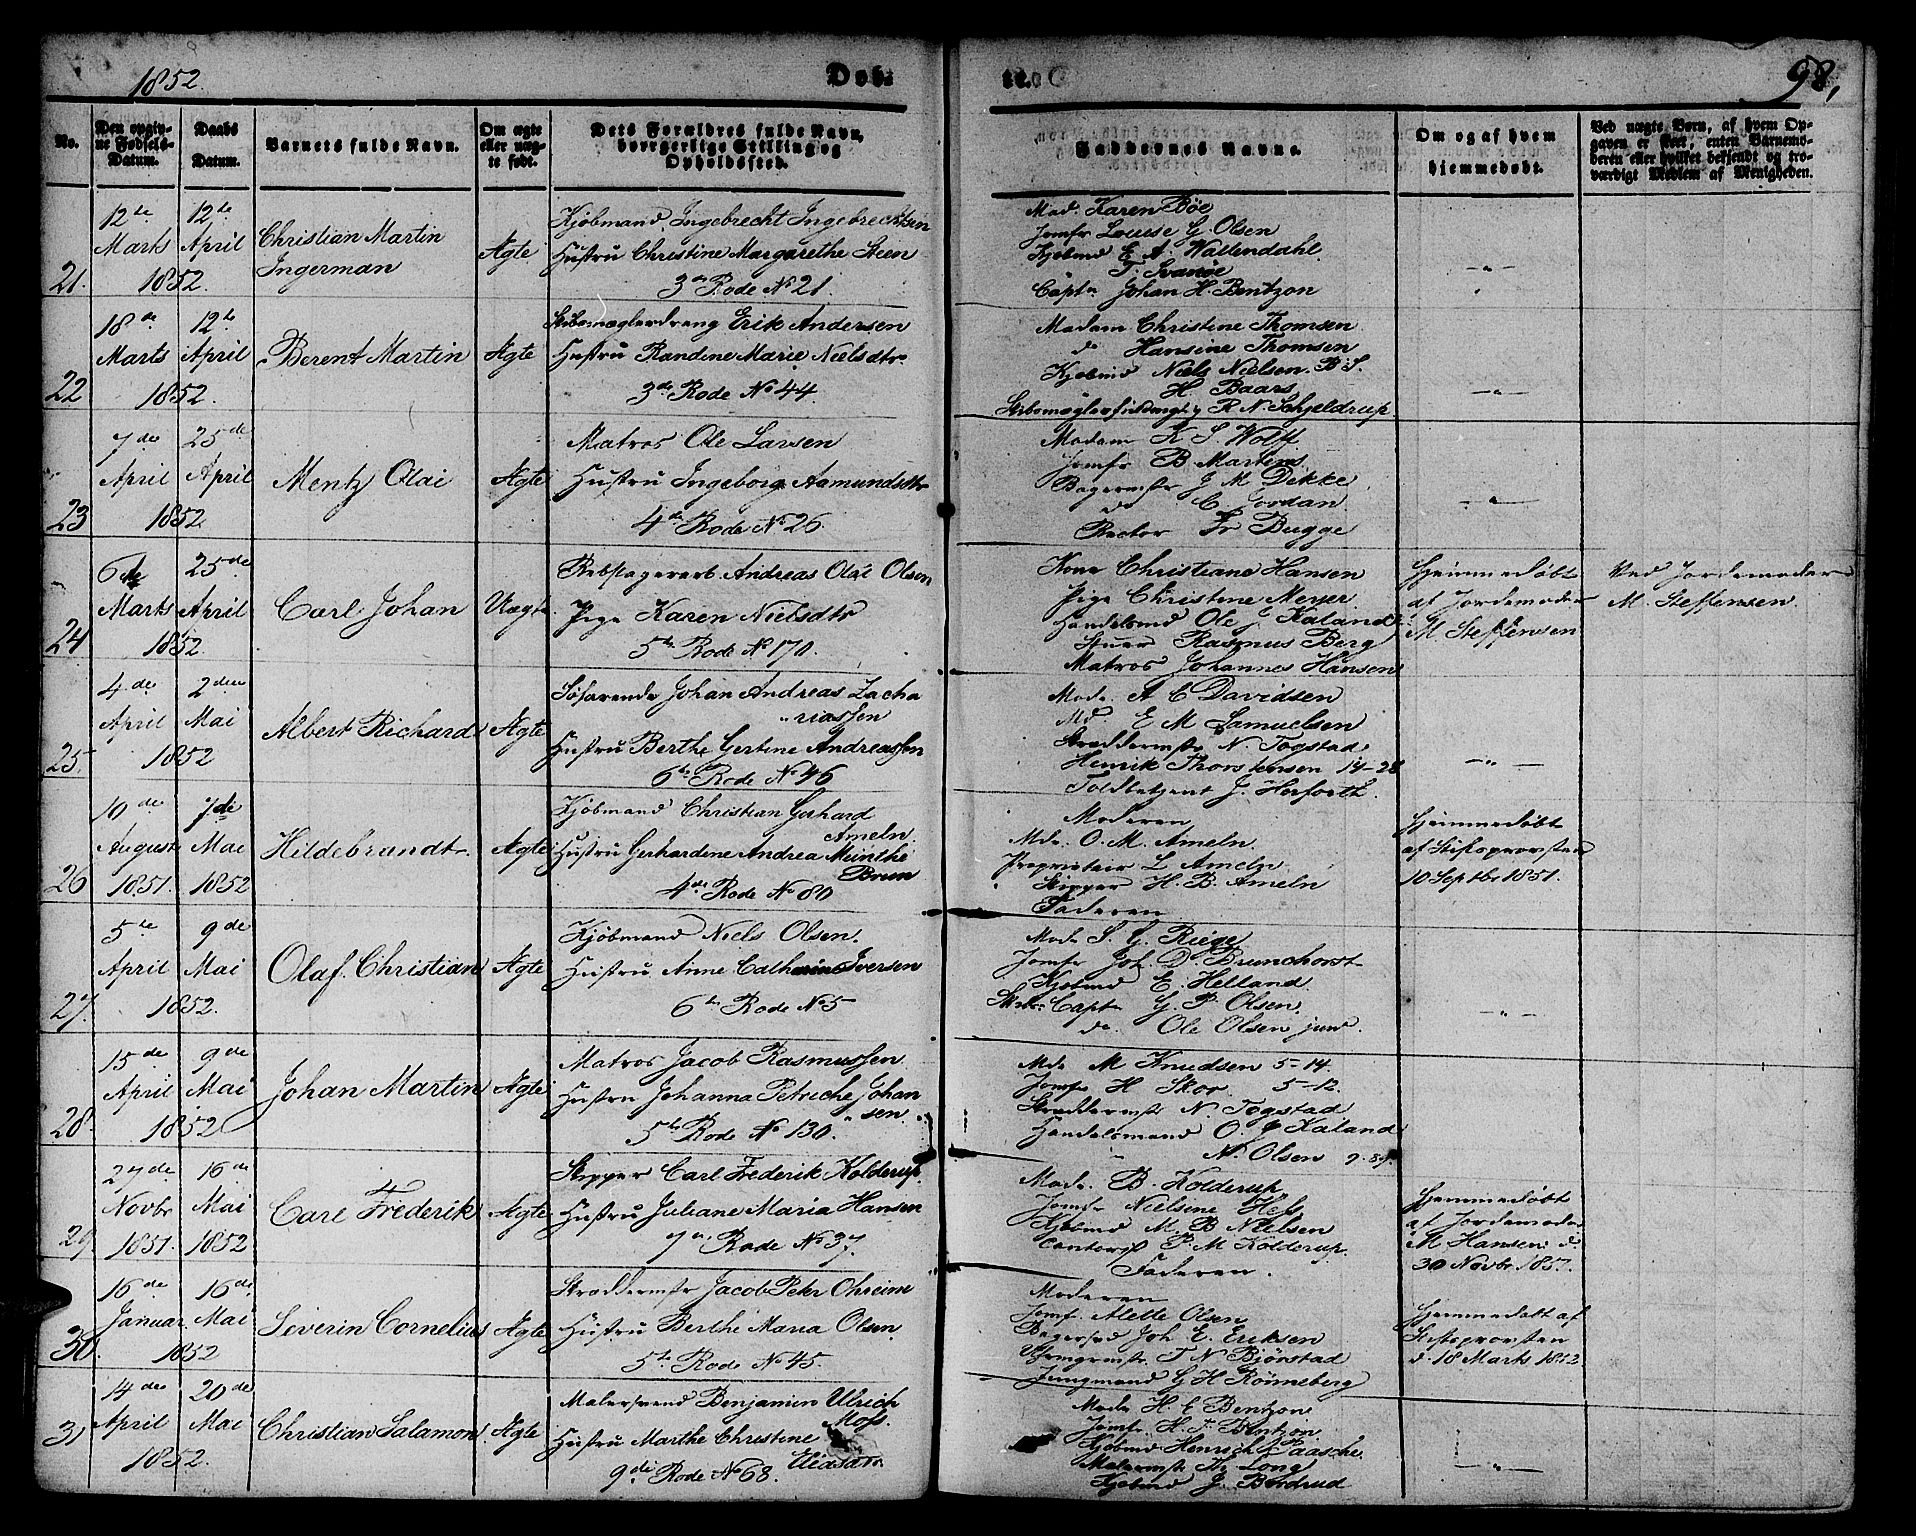 1852.
Døb-
te.
98,
No.
Den opgiv-
ne Fødsels-
Datum.
Daabs
Datum.
Barnets fulde Navn.
Om ægte
eller uæg-
te født.
Dets Forældres fulde Navn,
borgerlige Stilling og
Opholdssted.
Faddernes Navne.
Om og af hvem
hjemmedøbt.
Ved uægte Børn, af hvem Op-
gaven er skeet, enten Barnemo-
deren eller hvilket bekjendt og tro-
værdigt Medlem af Menigheden.
21.
12te Marts
12te April
1852.
Christian Martin
Ingerman
Ægte
Kjøbmand Ingebrecht Ingebrechtsen
Hustru Christine Margarethe Steen
3de Rode No 21.
Mad. Karen Bøe
Jomfr Louise G Olsen
Kjøbmd E A Wallendahl.
T. Svanøe
Captn Johan H. Bentzon
—"—
22
18de Marts
12te April
1852.
Berent Martin
Ægte
Erik Andersen
Hustru Randine Marie Nielsdtr.
3de Rode No 44.
Madam Christine Thomsen
do Hansine Thomsen
Kjøbmd Niels Nielsen. B.S.
H. Baars
R N. Schjelderup.
—"—
23
7de April
25de April
1852.
Mentz Olai
Ægte
Matros Ole Larsen
Hustru Ingeborg Aamundsdtr
4de Rode No 26.
Madam K S Wolff
Jomfr B Martens
Bagermstr J M Dekke
do C Jordan
Rector Fr Bugge
—"—
24
6te Marts
25de April
1852.
Carl Johan
Uægte
Rebslagerarb. Andreas Olai Olsen
Pige Karen Nielsdtr
5te Rode No 170.
Kone Christiane Hansen
Pige Christine Meyer.
Handelsmd Ole J Kaland
Stuer Rasmus Berg
Matros Johannes Hansen
Hjemmedøbt
af Jordemoder
M Steffensen
Ved Jordemoder
M. Steffensen.
25.
4de April
2den Mai
1852
Albert Richard
Ægte
Søfarende Johan Andreas Zacha
"riassen
Hustru Berthe Gertine Andreassen
6te Rode No 46
Mad. A C Davidsen
Md. E M Samuelsen
Skræddermstr N. Togstad
Henrik Thorstensen 14-28
Toldbetjent J. Herforth.
—"—
26
10de August 1851.
7de Mai 1852
Hildebrandt.
Ægte
Kjøbmand Christian Gerhard
Ameln
Hustru Gerhardine Andrea Meinthe
Brun
4de Rode No 80
Moderen
Mde. O. M. Ameln.
Proprietair L Ameln
Skipper H. B. Ameln
Faderen
Hjemmedøbt
af Stiftsprovsten
10 Septbr 1851.
27.
5te April
9de Mai
1852.
Olaf. Christian
Ægte
Kjøbmand Niels Olsen.
Hustru Anne Cathrine Iversen
6te Rode No 5
Mad. S. G. Riege
Jomfr Joh. D. Brunchorst
Kjøbmd E. Helland
Capt G. P. Olsen.
do. Ole Olsen jun.
—"—
28
15de April
9de Mai
1852
Johan Martin
Ægte
Matros Jacob Rasmussen
Hustru Johanna Petriche Johan
"sen.
5te Rode No 130.
Mde M Knudsen 5-14.
Jomfr H Skor. 5-12.
Skræddermstr N. Togstad
Handelsmand O. J Kaland
N. Olsen
29
27de Novbr 1851.
16de Mai 1852
Carl Frederik
Ægte
Skipper Carl Frederik Kolderup.
Hustru Juliane Maria Hansen
7de Rode No 37.
Made. B. Kolderup
Jomfr Nielsine Hess
Kjøbmd M B Nielsen
Contorist P. M Kolderup.
Faderen.
Hjemmedøbt
af Jordemoder
M Hansen d.
30 Novbr 1851.
30.
16de Januar
16de Mai
1852
Severin Cornelius
Ægte
Skræddermstr Jacob Peter Ohreim
Hustru Berthe Maria Olsen
5te Rode No 45.
Moderen
Jomf. Alette Olsen
Bagersvd Joh E. Eriksen
T N Bjørstad
Jungmand G H Rønneberg
Hjemmedøbt af
Stiftsprovsten
d. 18 Marts 1852.
31
14de April
20de Mai
1852.
Christian Salamon.
Ægte
Malersvend Benjamin Ulrich
Moss.
Hustru Marthe Christine
9de Rode No 68.
Made H E Bentzon
Jomfr H. F Bentzon
Kjøbmd Henrich Faasche
Malermstr Long
Kjøbmd J. Bordrud
—"—